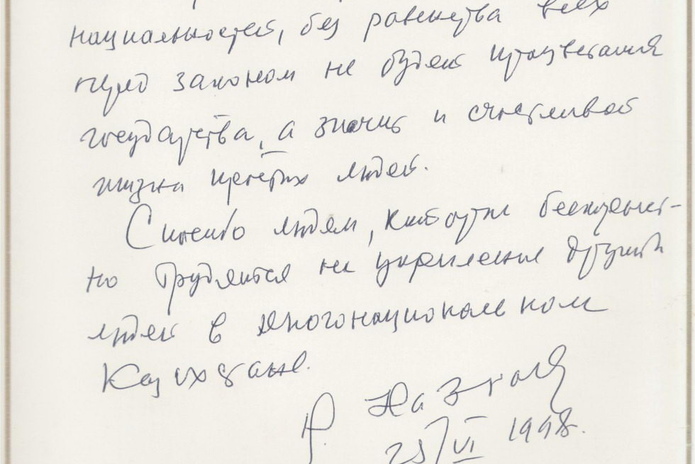 национальностей, без равенства всех
перед законом не будет процветания
государства, а значит и счастливой
жизни простых людей.
Спасибо людям, которые бескорыст-
но трудятся на укрепление дружбы
людей в многонациональном
Казахстане.
25/VI 1998.